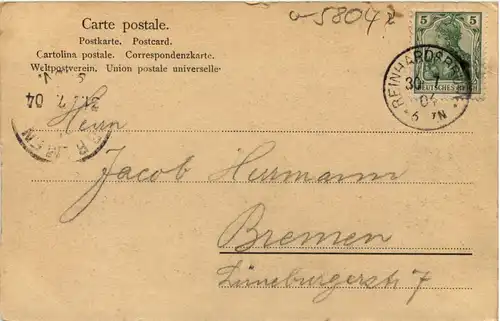 a 58042
Carte postale.
Postkarte. Postcard.
Cartolina postale. Correspondenzkarte.
Weltpostverein. Union postale universelle.
5 5
DEUTSCHES REICH
30 1
04
6 7N
04
BREMEN
Herrn
Jacob Hurmann
Bremen
Lüneburgerstr 7